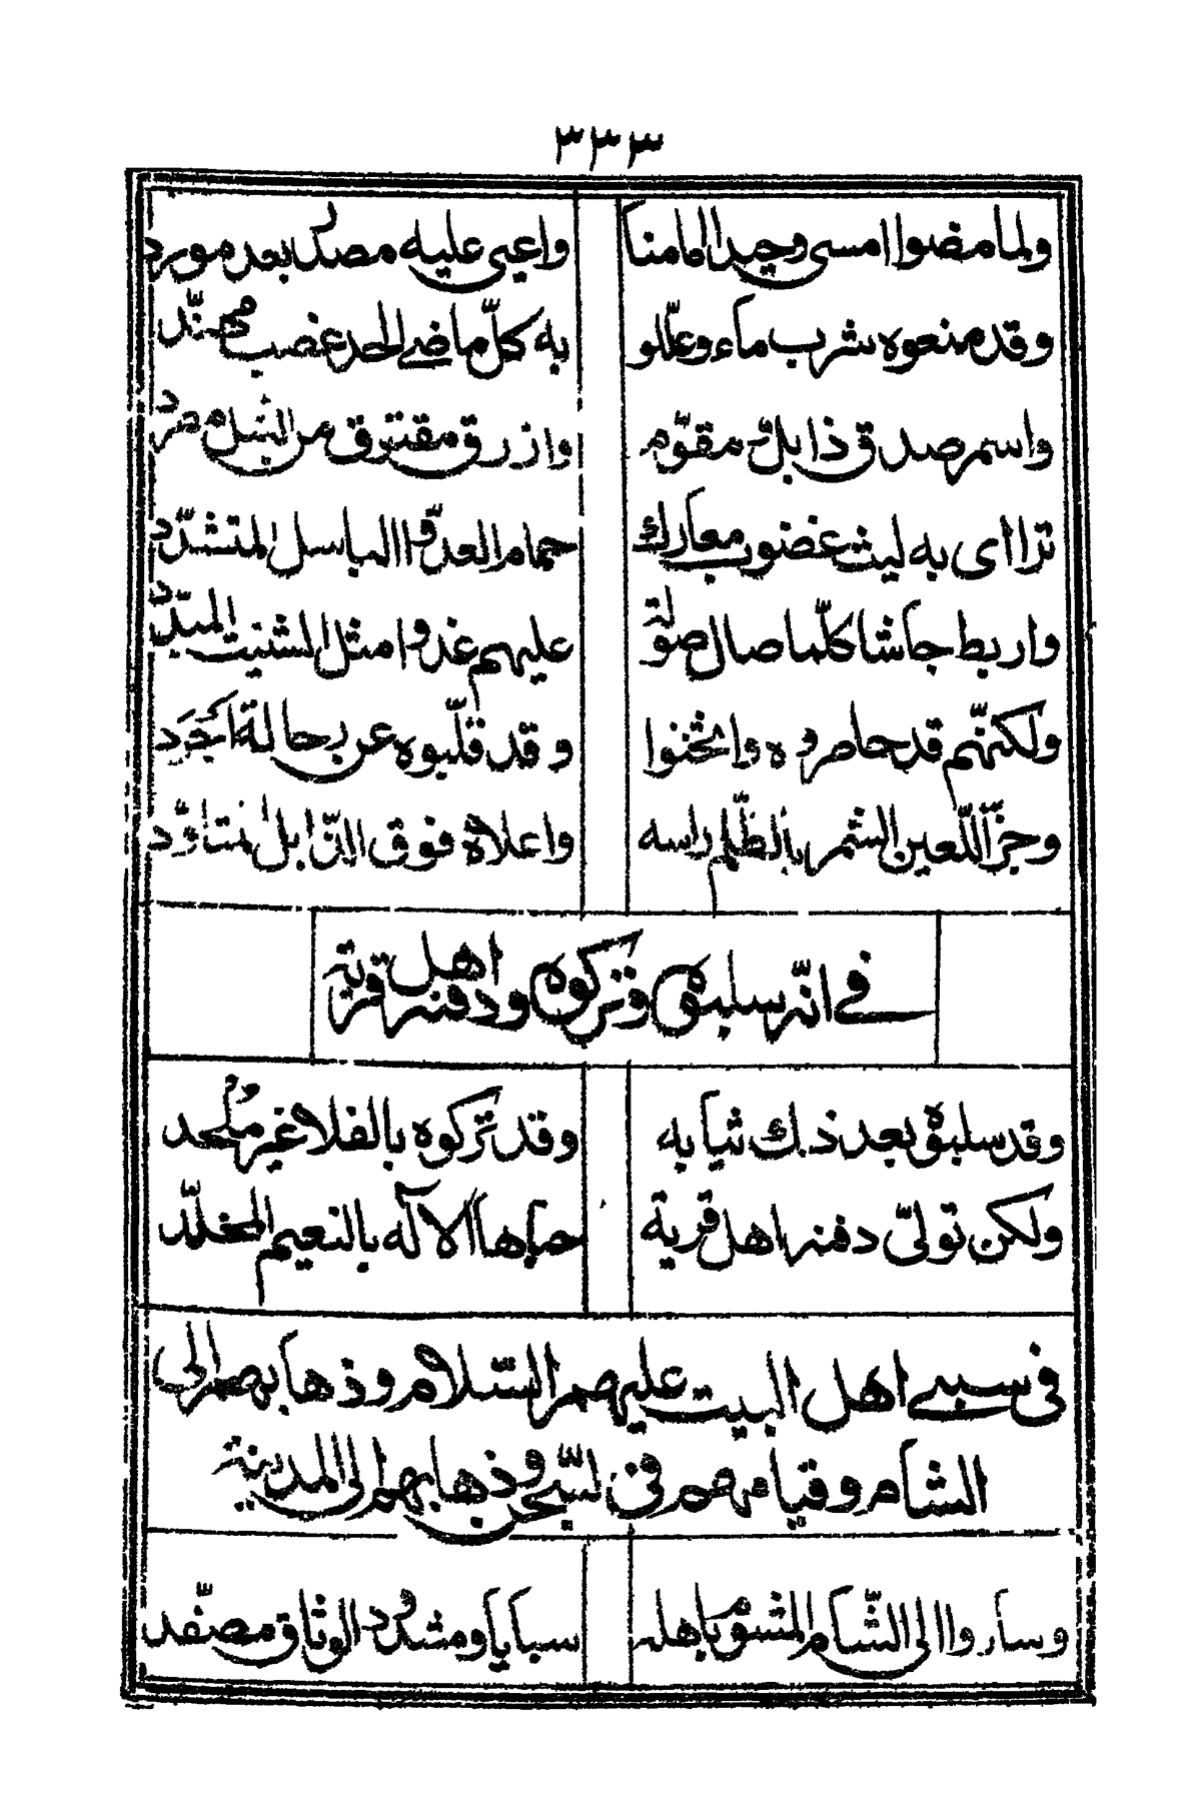 ٣٣٣
ولما مضوا امسى وحيدا امامنا واعيى عليه مصدر بعد مورد
وقد منعوه شرب ماء وعللوا به كلّ ماضي الحد عضب مهنّد
واسمر صدق ذابل مقوّم وازرق مفترق من النبل مصرد
تراءى به ليث غضوب معارك حمام العدو الباسل المتشدّد
واربط جاشا كلّما صال صولة عليهم غدوا مثل الشتيت المبدّد
ولكنّهم قد حاصروه واثخنوا وقد قلّبوه عن رحالة اجرد
وحزّ اللّعين الشمر بالظّلم راسه واعلاه فوق الذّابل المتاوّد
في انّه سلبوه وتركوه ودفنه اهل قرية
وقد سلبوه بعد ذلك ثيابه وقد تركوه بالفلا غير ملحد
ولكن تولّى دفنه اهل قرية حباها الاله بالنعيم المخلّد
في سبي اهل البيت عليهم السّلام وذهابهم الى
الشام وقيامهم في السّجن وذهابهم الى المدينة
وساروا الى الشّام المشوم باهله سبايا ومشدود الوثاق مصفّد